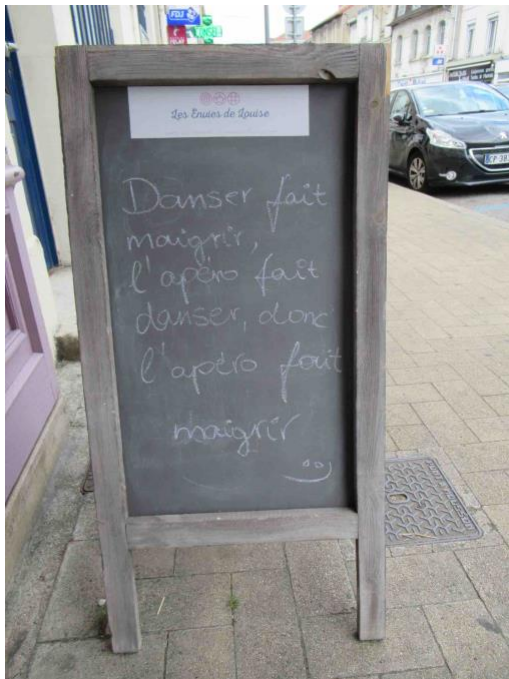 FDJ
Les Envies de Louise
Danser fait
maigrir,
l'apéro fait
danser, donc
l'apéro fait
maigrir